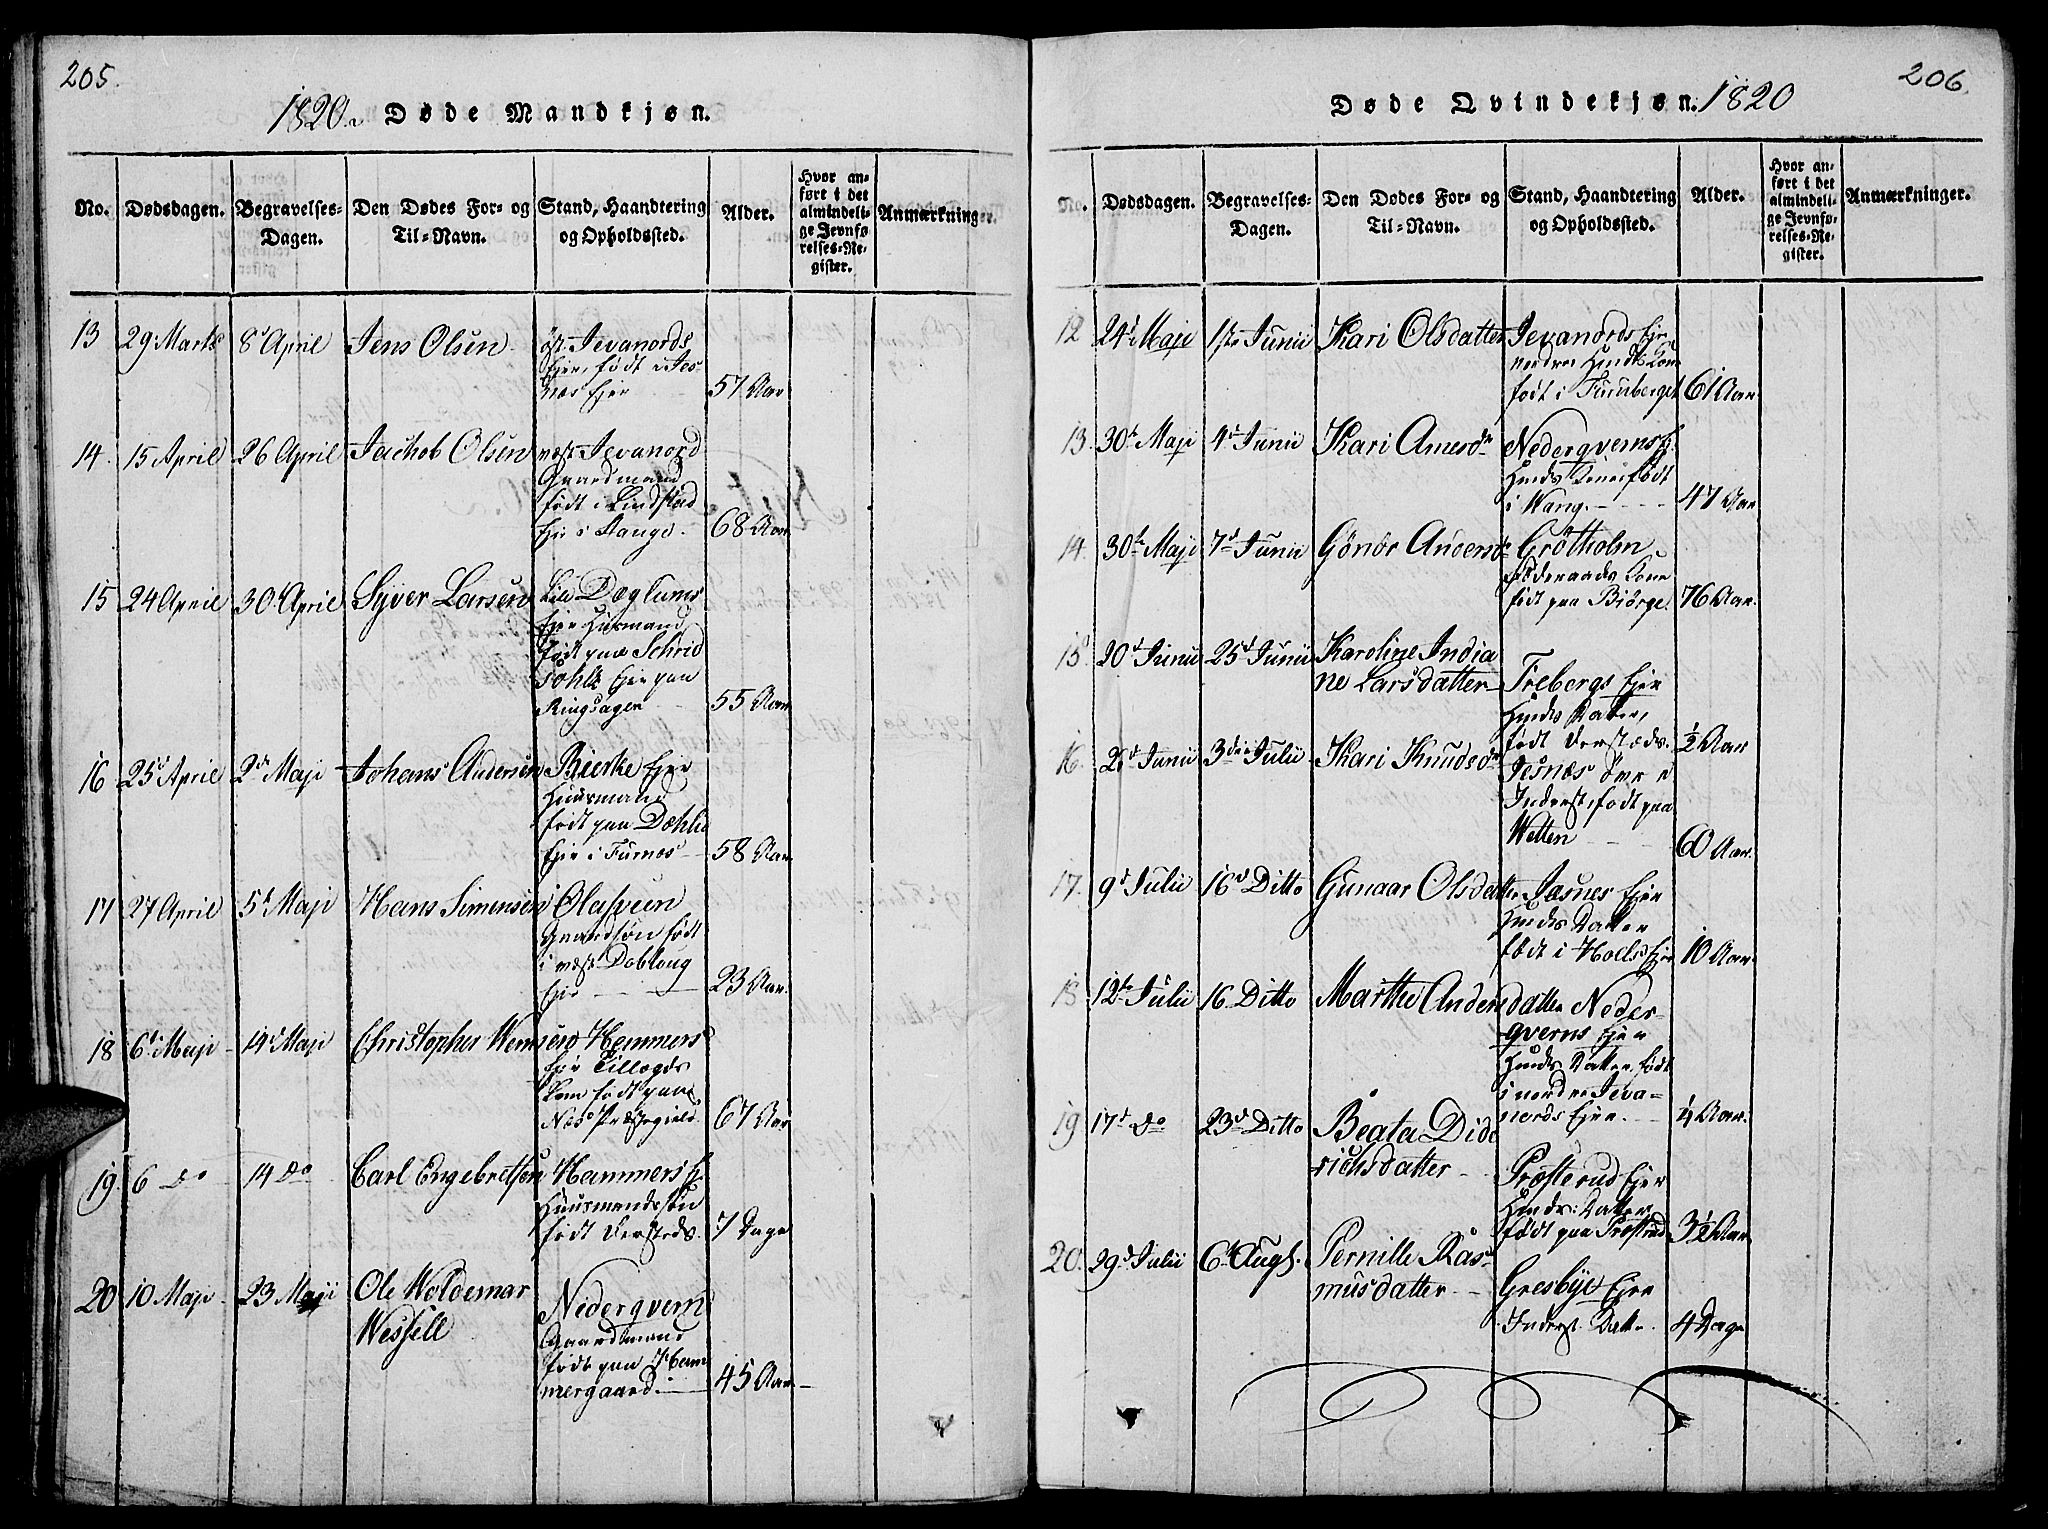 205.
1820. Døde Mandkjøn.
No. Dødsdagen. Begravelses-Dagen. Den Dødes For- og Til-Navn. Stand, Haandtering og Opholdssted. Alder. Hvor anført i det almindelige Jevnførelses-Register. Anmærkninger.
13 29 Marts 8d April Jens Olsen øst. Jevanords
Ejer, født i Jes-
næs Ejer 57 Aar
14. 15 April 26 April Jachob Olsen væst Jevanord
Gaardmand
født i Lindstad
Ejer i Stange. 68 Aar
15 24 April 30 April Syver Larsen Lill Dæglums
Ejer Husmand
født paa Schrid
Ejer paa
Ringsager 55 Aar
16 25d April 2d Maji Johans Andersen Bierke Ejer
Huusmand
født paa Dæhlie
Ejer i Furnæs 58 Aar.
17 27 April 5d Maji Hans Simensen Olasveen
Gaardsøn født
i væst Dobloug
Ejer 23 Aar.
18 6d Maji 14d Maji Christopher
Hammers
Ejer Tillægds
Lem født paa
Næs Præstegield 67 Aar
19 6 do 14 do Carl Engebretsen Hammers E.
Huusmandssøn
født dersteds. 7 Dage
20 10 Maji 23 Maji Ole Woldemar
Wessell Nederqvern
Gaardmand
født paa Ham
mergaard. 45 Aar
206.
Døde Qvindekjøn. 1820
No. Dødsdagen. Begravelses-Dagen. Den Dødes For- og Til-Navn. Stand, Haandtering og Opholdssted. Alder. Hvor anført i det almindelige Jevnførelses-Register. Anmærkninger.
12 24d Maji 1ste Junii Kari Olsdatter Jevanords Ejer
nordre Hunds Kone
født i Furuberget 61 Aar
13. 30te Maji 4d Junii Kari Arnesdr Nederqverns E.
Hunds Kone født
i Wang. 47 Aar
14. 30te Maji 7d Junii Gönör Andersdr Grötholm
Föderaads Kone
født paa Biörge 76 Aar.
15 20d Junii 25d Junii Karoline India
ne Larsdatter Freebergs Ejer
Hunds Datter,
født dersteds. ½ Aar
16. Junii 3die Julii Kari Knudsdr Jesnæs
Inderst, født paa
Wetten 60 Aar.
17. 9d Julii 16d Ditto Gunaar Olsdatter Jæsnes Ejer
Hunds Datter
født i Hoels Ejer 10 Aar.
18 12te Julii 16. Ditto Marthe Andersdatter Neder-
qverns Ejer
Hunds Datter, født
i nordre Jeva-
nords Ejer. ¼ Aar.
19 17d do 23d Ditto Beata Did
richsdatter Præsterud Ejer
Hunds: Datter
født paa Præsterud 3½ Aar
20. 29d Julii 6te Augs. Pernille Ras-
musdatter Gresbye Ejer
Inderst. Datter. 4 Dage